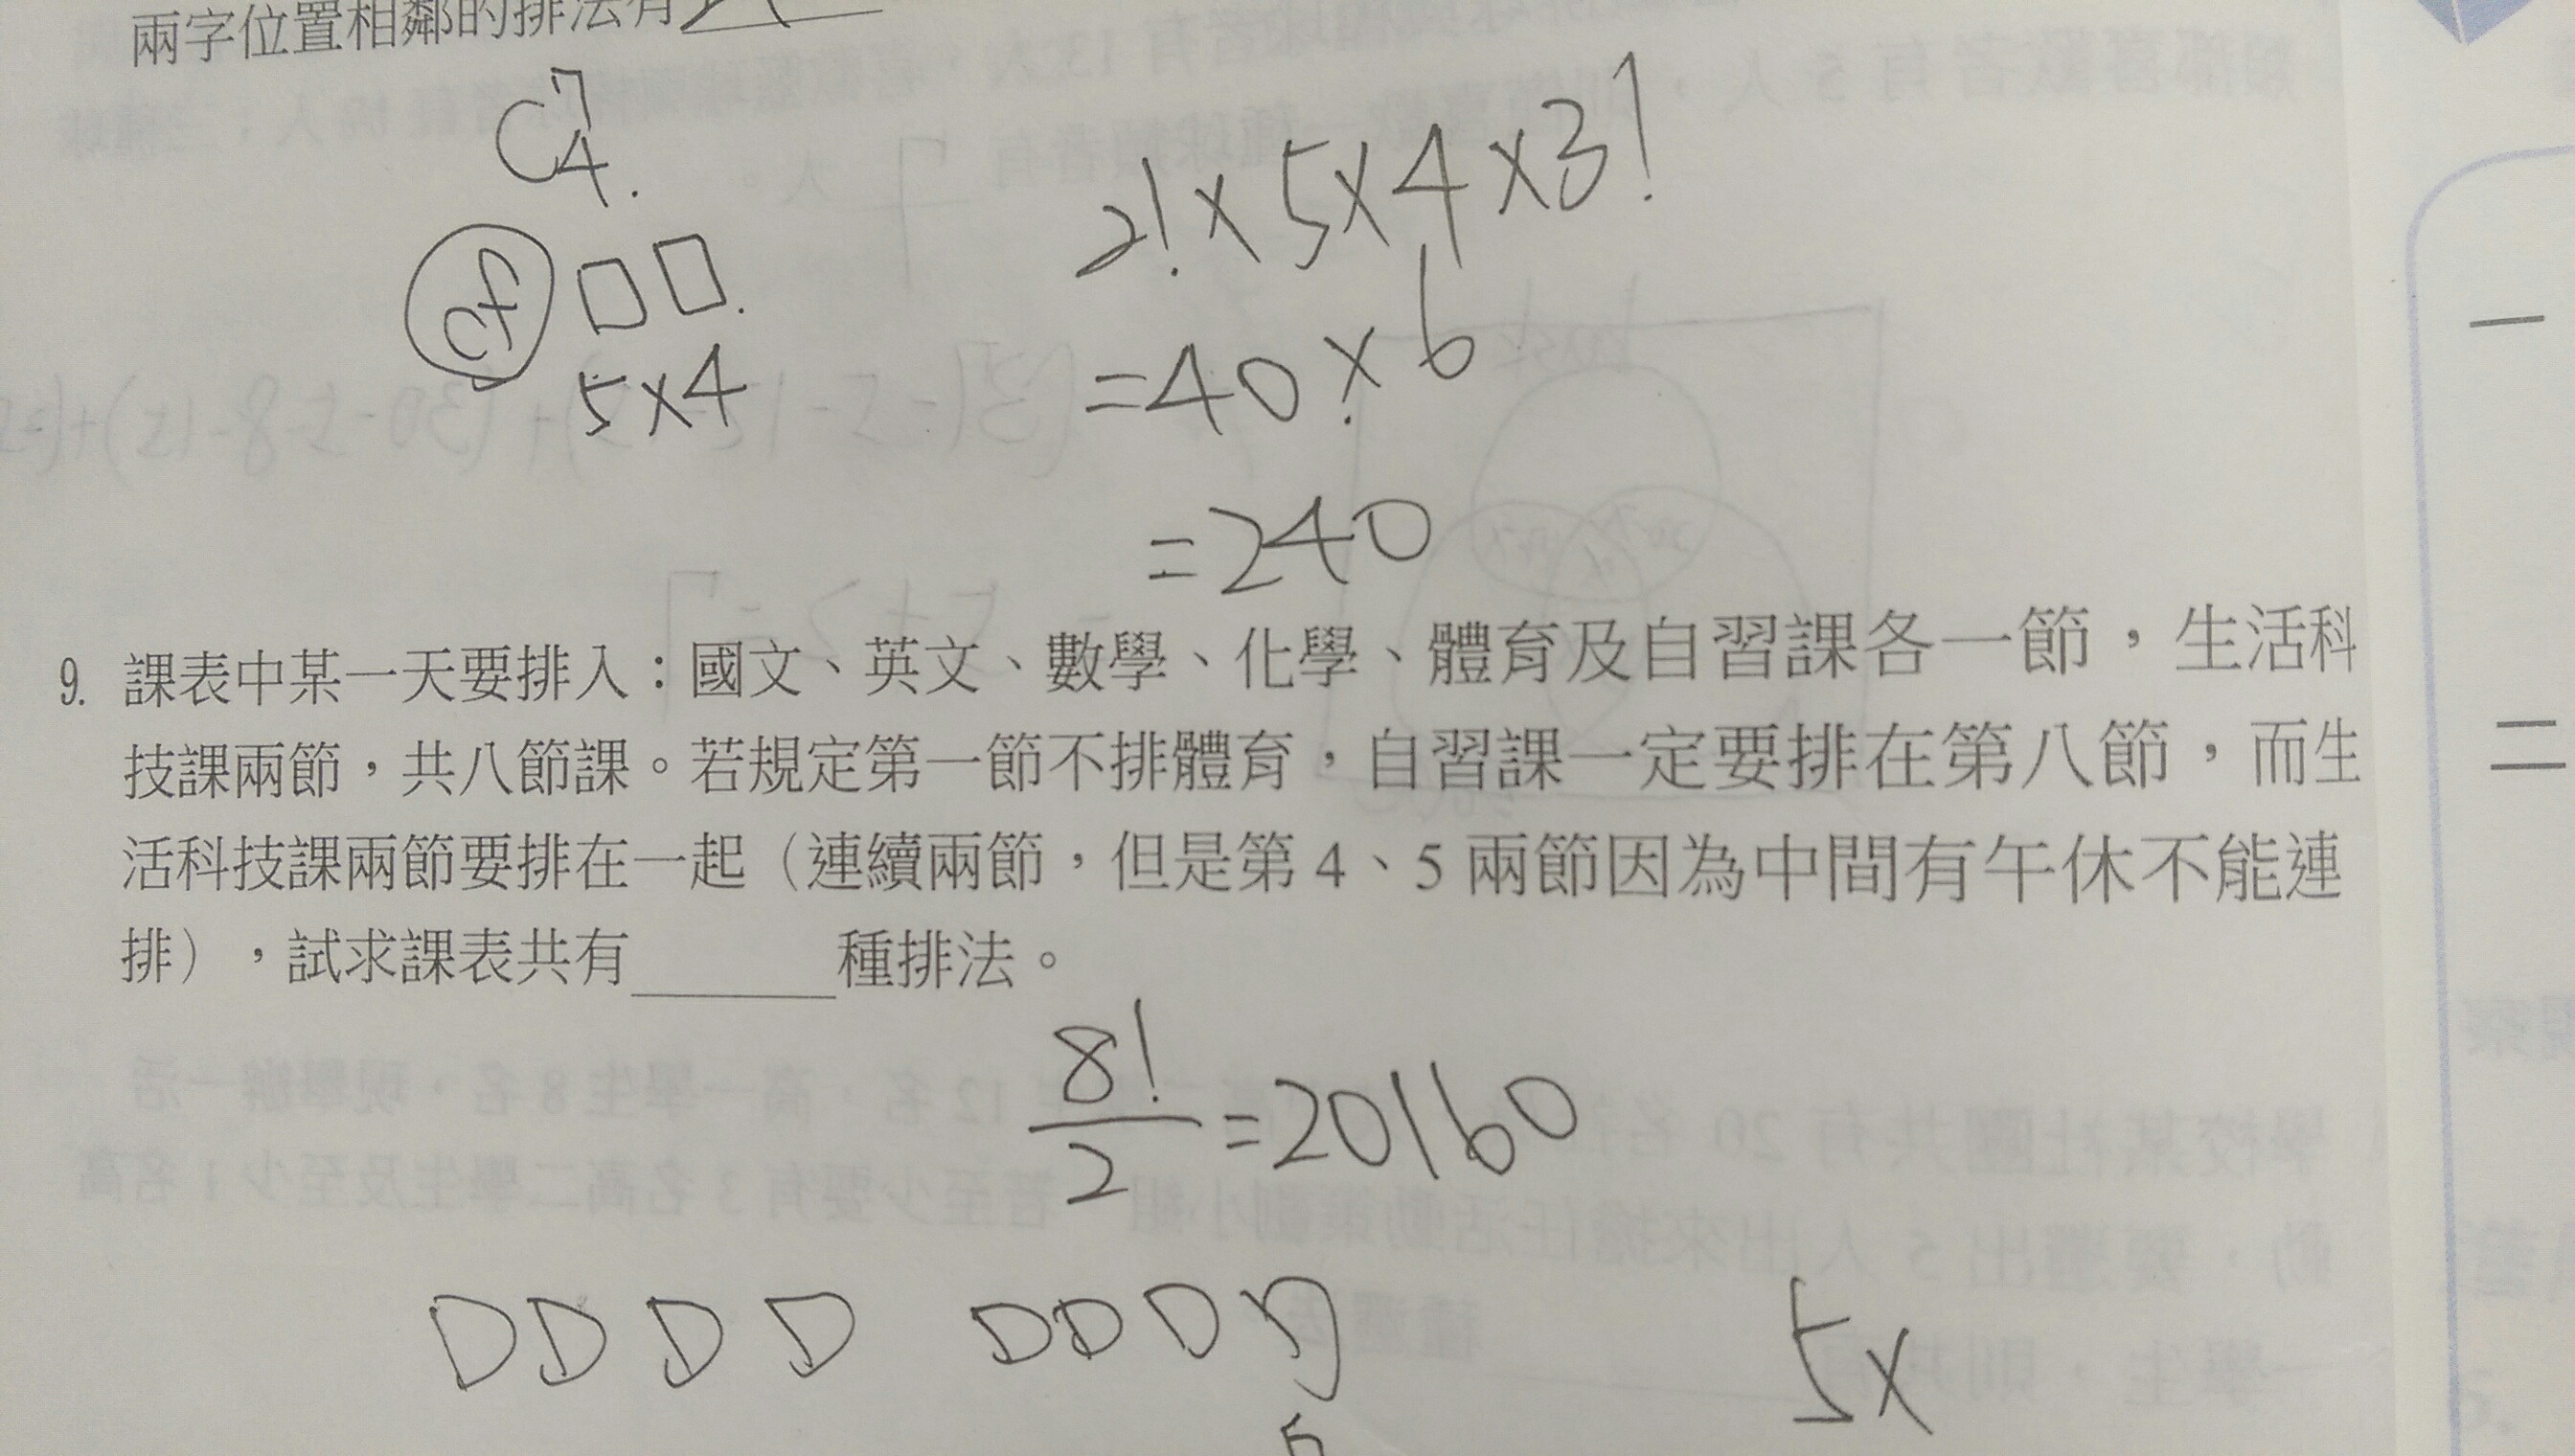 兩字位置相鄰的排法有
C⁷₄.
2!×5×4×3!
cf □□.
5×4
=40×6
=240
一
9. 課表中某一天要排入：國文、英文、數學、化學、體育及自習課各一節，生活科
技課兩節，共八節課。若規定第一節不排體育，自習課一定要排在第八節，而生
二
活科技課兩節要排在一起（連續兩節，但是第 4、5 兩節因為中間有午休不能連
排），試求課表共有______種排法。
8!/2=20160
5×